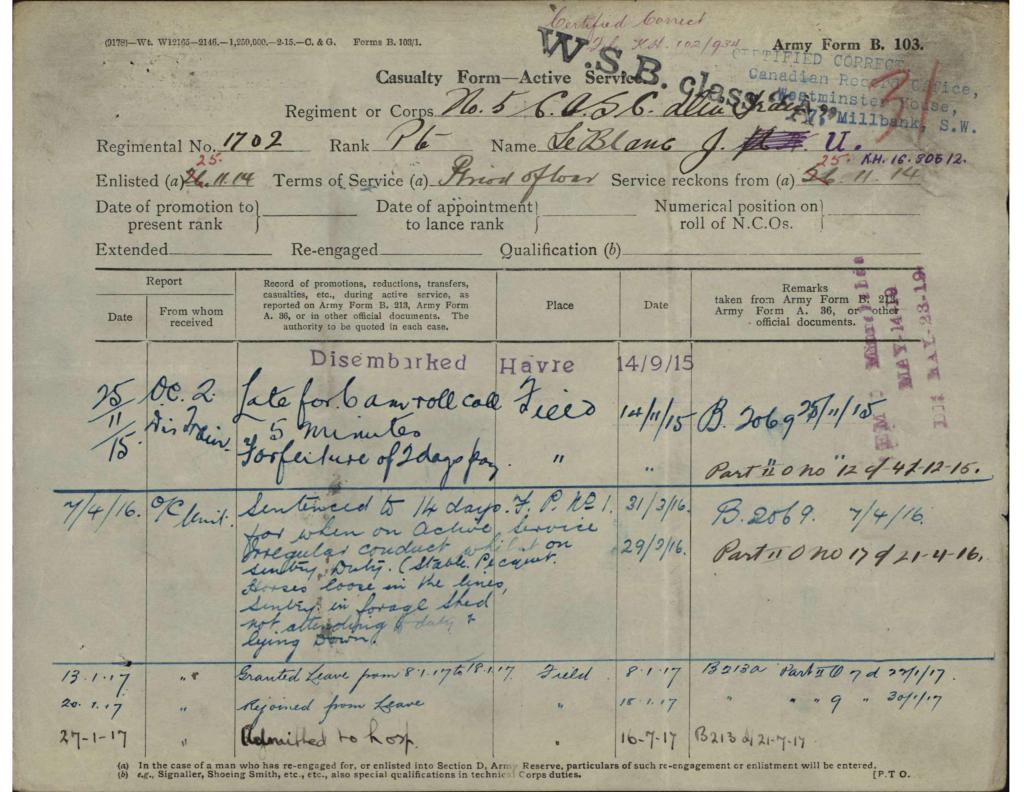 Certified Correct
(9178)—Wt. W12165—2146.—1,250,000.—2-15.—C. & G. Forms B. 103/1.
K.H. 102/934
Army Form B. 103.
W.S.B. class "A"
CERTIFIED CORRECT,
Canadian Record Office,
Westminster House,
7, Millbank, S.W.
31
Casualty Form—Active Service.
Regiment or Corps No. 5 C.A.S.C.
Regimental No. 1702 Rank Pte Name LeBlanc J. U.
25. 25. KH. 16. 806/2.
Enlisted (a) 26.11.14 Terms of Service (a) Period of war Service reckons from (a) 26.11.14
Date of promotion to present rank
Date of appointment to lance rank
Numerical position on roll of N.C.Os.
Extended Re-engaged Qualification (b)
Report
Date
From whom received
Record of promotions, reductions, transfers, casualties, etc., during active service, as reported on Army Form B. 213, Army Form A. 36, or in other official documents. The authority to be quoted in each case.
Place
Date
Remarks taken from Army Form B. 213, Army Form A. 36, or other official documents.
MAY-14-19
MAY-23-19
Disembarked Havre 14/9/15
25/11/15 O.C. 2 Late for 6 am roll call Field 14/11/15 B. 2069 25/11/15
Div Train. 5 minutes
Forfeiture of 2 days pay. " " Part II O no 12 d 4-12-15.
7/4/16. O/C Unit. Sentenced to 14 days. F. P. No 1. 31/3/16. B. 2069. 7/4/16.
for when on Active Service
Irregular conduct whilst on 29/3/16. Part II O no 17 d 21-4-16.
Sentry Duty. (Stable Picquet.
Horses loose in the lines,
Sentry in forage shed
not attending to duty &
lying down.
13.1.17 " Granted Leave from 8.1.17 to 18.1.17 Field 8.1.17 B213a Part II O 7 d 22/1/17
20.1.17 " Rejoined from Leave " 18.1.17 " " 9 " 30/1/17
27-1-17 " Admitted to hosp. " 16-7-17 B213 d 21-7-17
(a) In the case of a man who has re-engaged for, or enlisted into Section D, Army Reserve, particulars of such re-engagement or enlistment will be entered.
(b) e.g., Signaller, Shoeing Smith, etc., etc., also special qualifications in technical Corps duties. [P.T O.